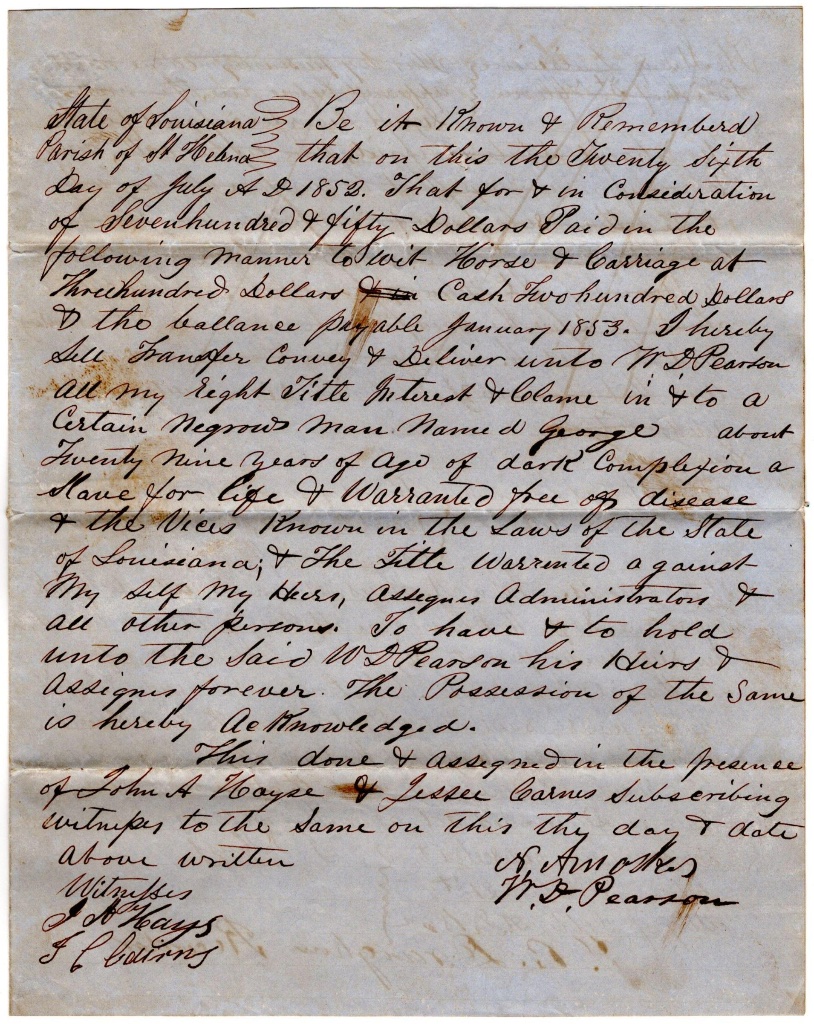 State of Louisiana Be it Known & Rememberd
Parish of St Helena that on this the Twenty Sixth
Day of July A D 1852. That for & in Consideration
of Sevenhundred & fifty Dollars Paid in the
following manner to wit Horse & Carriage at
Threehundred Dollars & in Cash Twohundred Dollars
& the ballance payable January 1853. I hereby
Sell Transfer Convey & Deliver unto W D Pearson
all my right Title Interest & Clame in & to a
Certain Negrow man Named George about
Twenty Nine years of age of dark Complexion a
Slave for life & Warranted free of disease
& the Vices Known in the Laws of the State
of Louisiana; & The Title Warrented against
My Self My Heirs, Assignes Administrators &
all other persons. To have & to hold
unto the Said W D Pearson his Heirs &
Assignes forever. The Possession of the Same
is hereby Acknowledged.
This done & assegned in the presence
of John A Hayse & Jessee Carnes Subscribing
witnesses to the Same on this thy day & date
above written
Witnesses
W. D. Pearson
J A Hays
J C Cairns